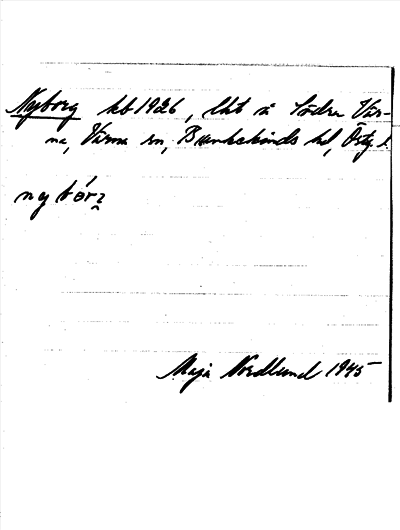 Nyborg kb 1926, lht u Södra Vår-
na, Värna sn, Bankekinds hd, Östg l.
nybór
Maja Nordlund 1945